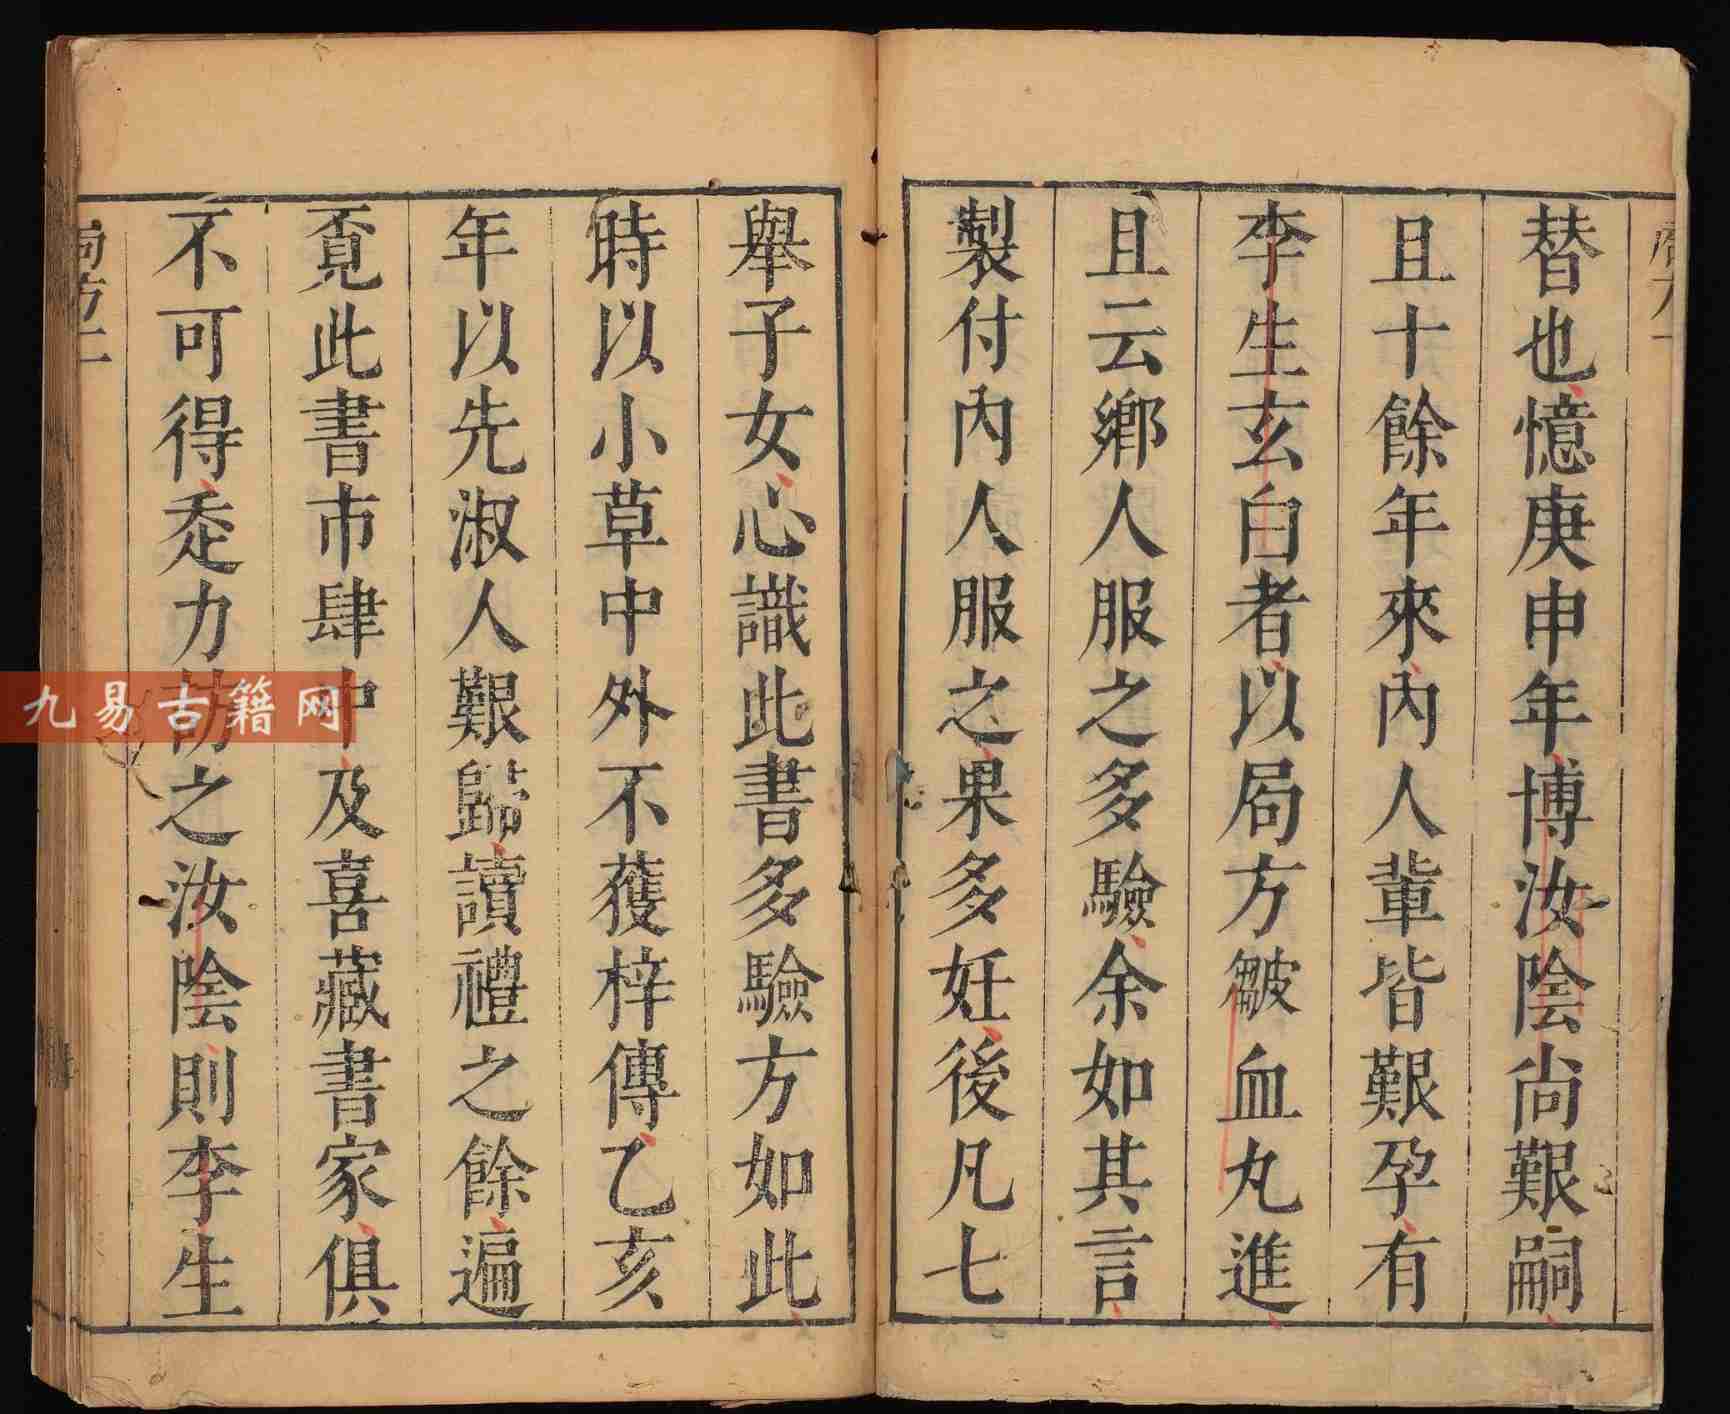 替也憶庚申年博汝陰尚艱嗣
且十餘年來內人輩皆艱孕有
李生玄白者以局方皺血丸進
且云鄉人服之多驗余如其言
製付內人服之果多妊後凡七
舉子女心識此書多驗方如此
時以小草中外不獲梓傳乙亥
年以先淑人艱歸讀禮之餘遍
覔此書市肆中及喜藏書家俱
不可得忝力訪之汝陰則李生
九易古籍网